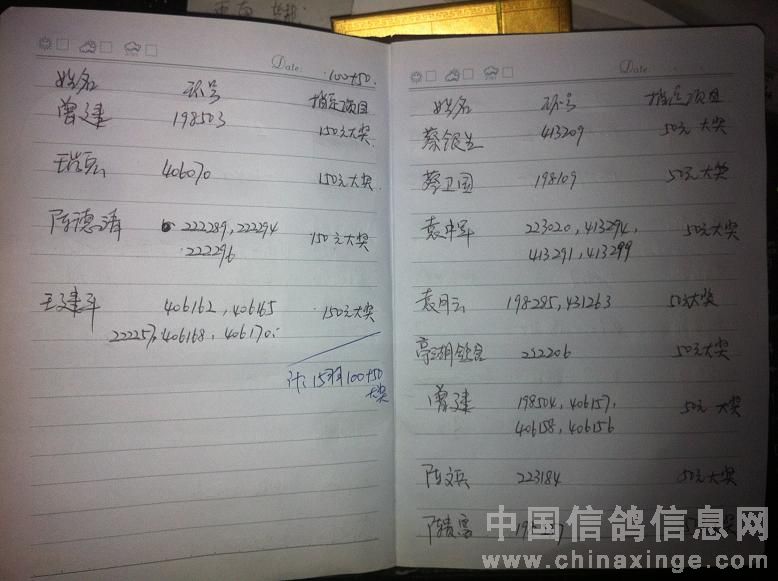 Date: 100+50.
姓名 环号 指定项目
曾建 198503 150元大奖
406070 150元大奖
陈德清 222289, 222294 150元大奖
222296
王建军 406162, 406165 150元大奖
22257, 406168, 406170.
计: 15羽100+50
大奖
Date:
姓名 环号 指定项目
蔡银兰 413209 50元大奖
蔡卫国 198109 50元大奖
袁中军 223020, 413294, 50元大奖
413291, 413299
袁月云 198285, 431263 50元大奖
222206 50元大奖
曾建 198504, 406157, 50元大奖
406158, 406156
陈文兵 223184 50元大奖
中国信鸽信息网
www.chinaxinge.com